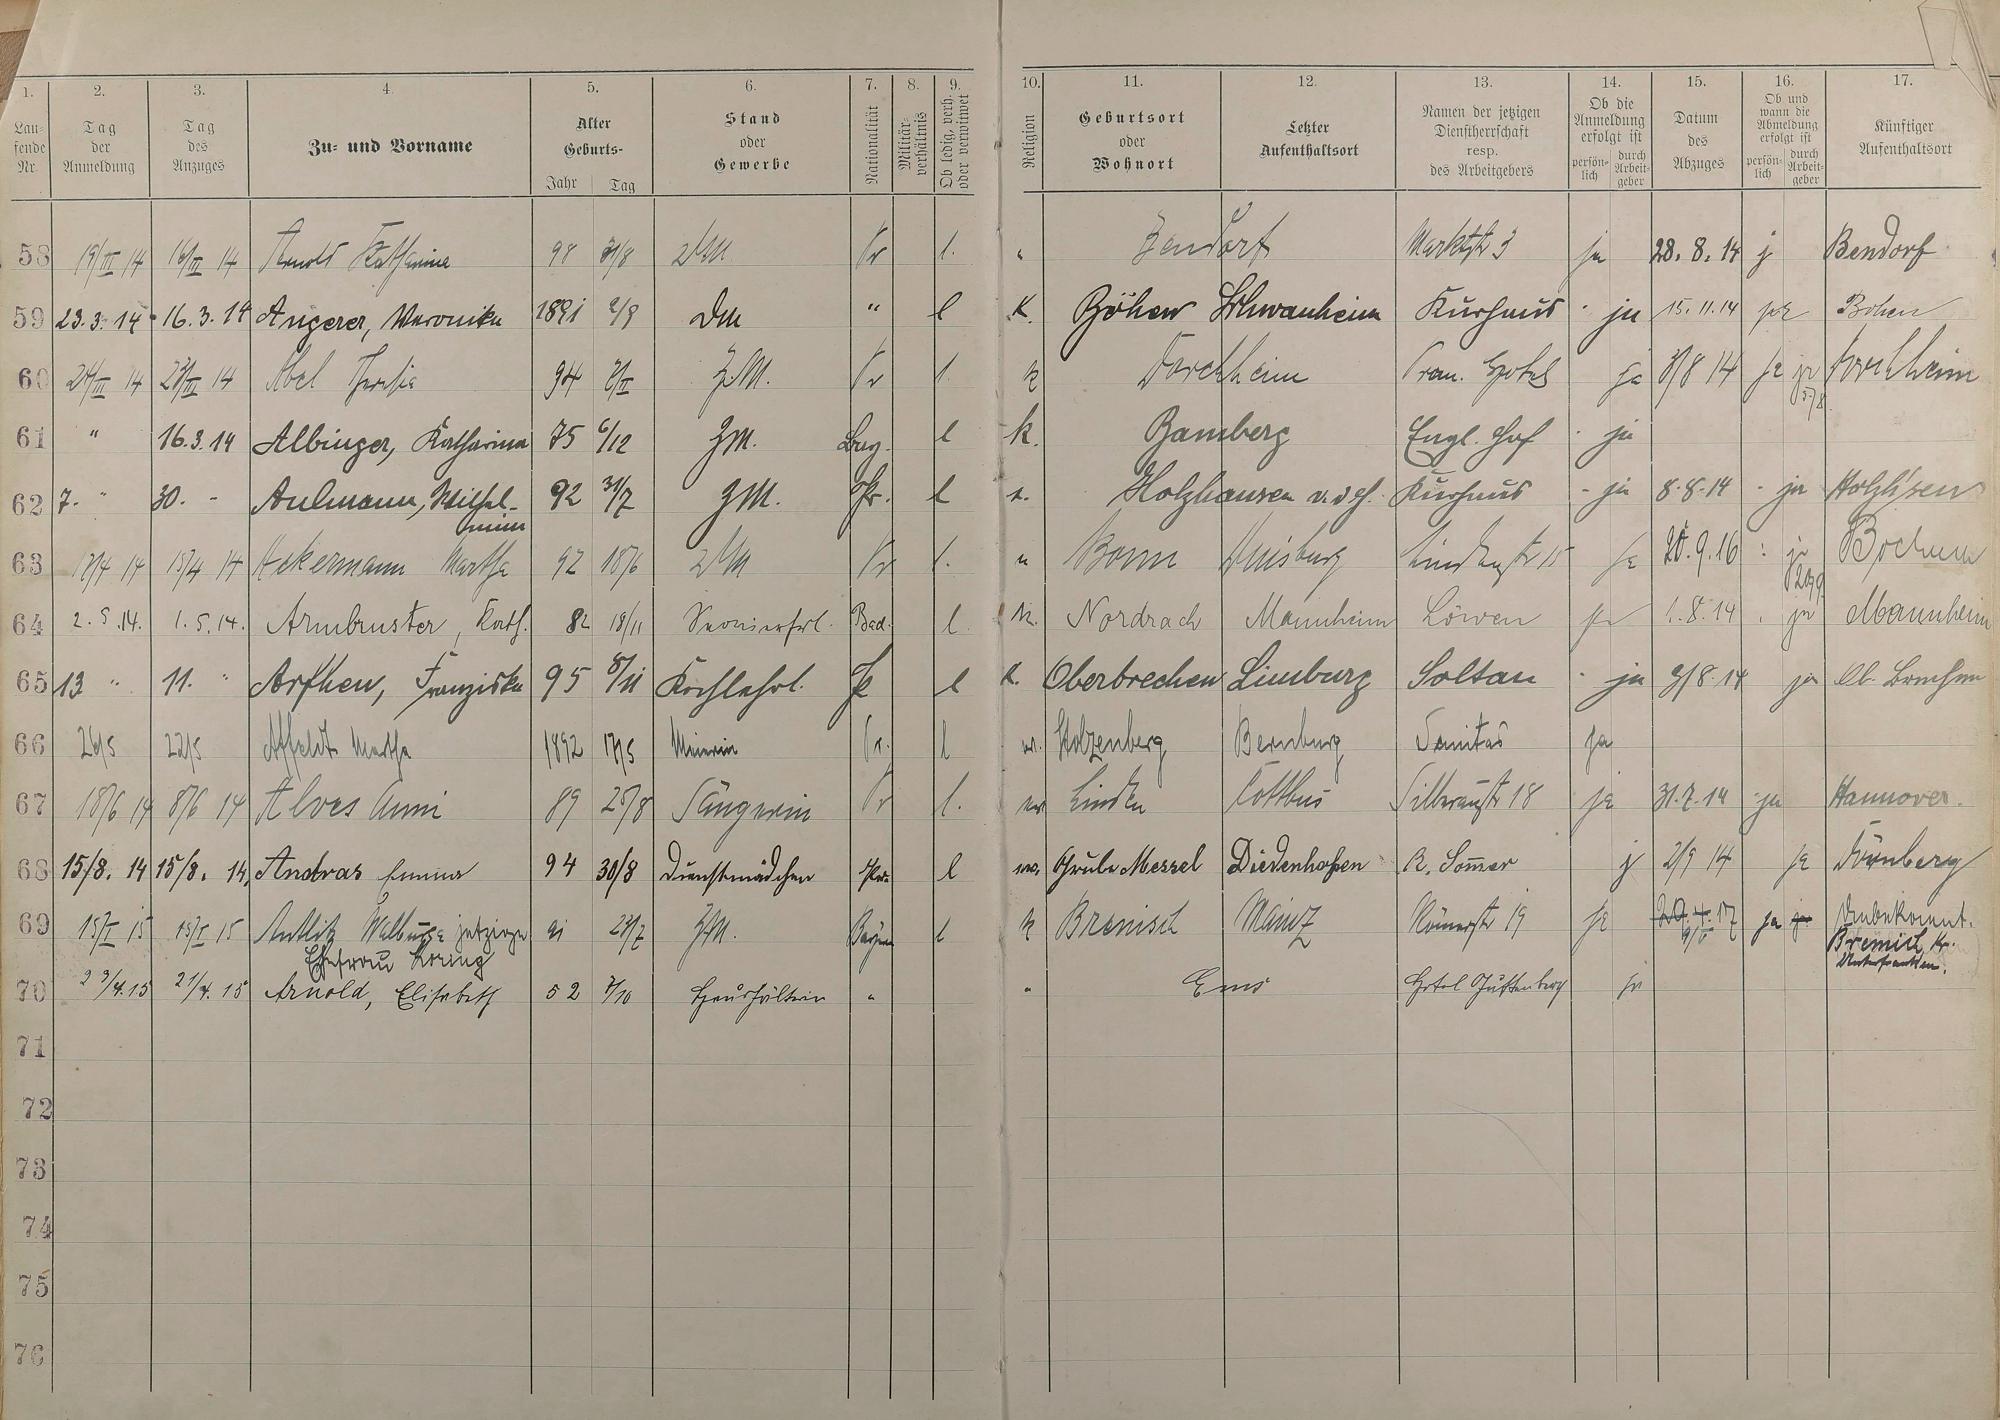 1. 2. 3. 4. 5. 6. 7. 8. 9. 10. 11. 12. 13. 14. 15. 16. 17.
Lau-
fende
Nr.
Tag
der
Anmeldung
Tag
des
Anzuges
Zu- und Vorname
Alter
Geburts-
Jahr Tag
Stand
oder
Gewerbe
Nationalität
Militär-
verhältnis
Ob ledig, verh.
oder verwitwet
Religion
Geburtsort
oder
Wohnort
Letzter
Aufenthaltsort
Namen der jetzigen
Dienstherrschaft
resp.
des Arbeitgebers
Ob die
Anmeldung
erfolgt ist
persön-
lich
durch
Arbeit-
geber
Datum
des
Abzuges
Ob und
wann die
Abmeldung
erfolgt ist
persön-
lich
durch
Arbeit-
geber
Künftiger
Aufenthaltsort
58 19/III 14 16/III 14 Arnold Katharina 98 31/8 Pr l. " Bendorf Marktstr 3 ja 28. 8. 14 j Bendorf
59 23. 3. 14 16. 3. 14 Angerer, Veronika 1891 2/9 " l K. Schwanheim Kurhaus - ja 15. 11. 14
60 24/III 14 23/III 14 Abel Theresia 94 2/II Z.M. Pr l. k Dorchheim Hotel ja 3/8 14 ja Dorchheim
61 " 16. 3. 14 Albinger, Katharina 75 6/12 ZM. Bay. l k. Bamberg Engl. Hof - ja
62 7. " 30. - Aulmann, Wilhel-
mine 92 31/7 ZM. Pr. l Holzhausen v. d. H. Kurhaus - ja 8. 8. 14 - ja Holzhsen
63 17/4 14 15/4 14 Ackermann Martha 92 18/6 Pr l. " Bonn Duisburg Lindenstr 15 ja 20. 9. 16 ja Bochum
64 2. 5. 14. 1. 5. 14. Armbruster, Kath. 82 18/11 Servierfrl. Bad. l. k. Nordrach Mannheim Löwen ja 1. 8. 14 ja Mannheim
65 13 " 11. " Arthen, Franziska 95 8/11 Kochlehrl. Pr l K. Oberbrechen Limburg Soltau - ja 3/8. 14 ja Ob. Brechen
66 26/5 22/5 Affeldt Martha 1892 17/5 Pr. l Stolzenberg Bernburg Sanitas ja
67 18/6 14 8/6 14 Alves Anni 89 25/8 Sängerin Pr l. Linden Cottbus Silberaustr 18 ja 31. 7. 14 - ja Hannover.
68 15/8. 14 15/8. 14, Andras Emma 94 30/8 Dienstmädchen l Grube Messel Diedenhofen R. Sommer j 2/9 14 ja Dörnberg
69 15/I 15 13/I 15 Antlitz Walburga jetzige
Ehefrau Koring 91 23/7 ZM. Bayern l k Bremisch Mainz Römerstr 19 ja ja Unbekannt.
70 23/4. 15 21/4. 15 Arnold, Elisabeth 52 7/10 Haushälterin " " Ems Hotel Guttenberg ja
71
72
73
74
75
76